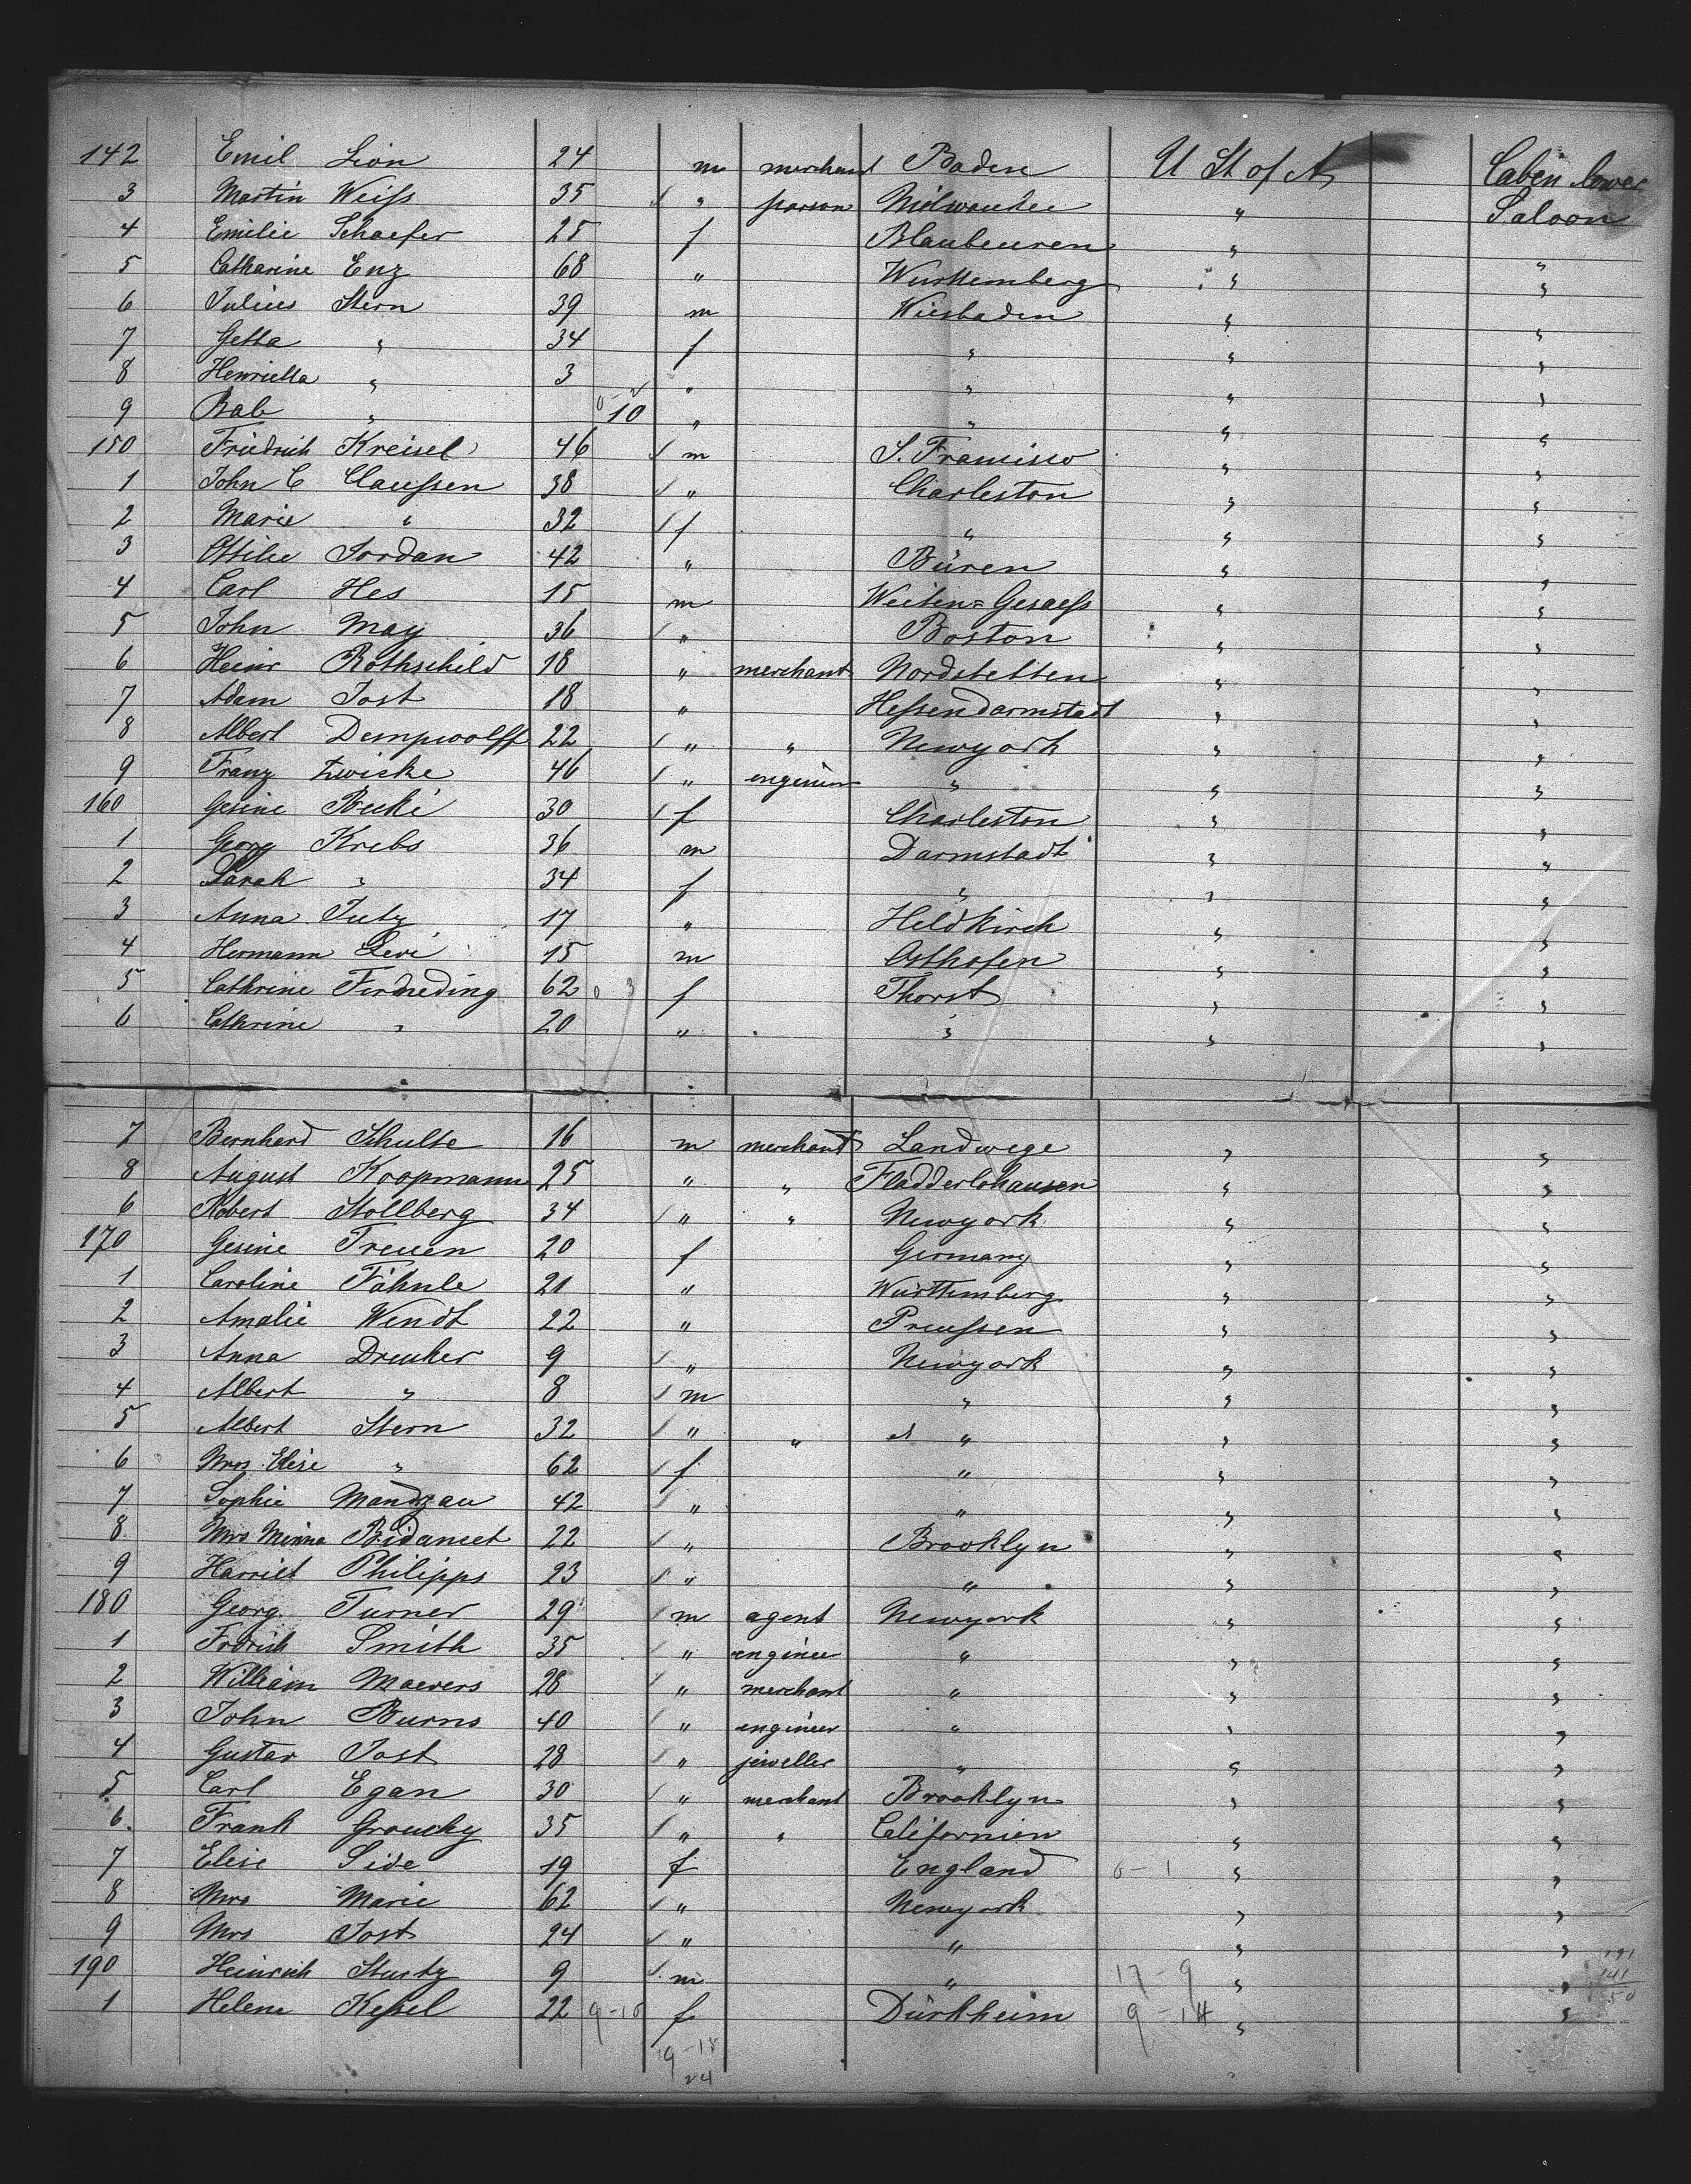 142 Emil Lion 24 m merchant Baden U St of A Cabin lower
3 Martin Weiſs 35 " parson Milwaukee " Saloon
4 Emilie Schaefer 25 f Blaubeuren " "
5 Catharine Enz 68 " Wurttemberg " "
6 Julius Stern 39 m Wiesbaden " "
7 Jetta " 34 f " " "
8 Henrietta " 3 " " " "
9 Bab " 10 " " " "
150 Friedrich Kreisel 46 m S. Francisco " "
1 John C Clauſsen 38 " Charleston " "
2 Marie " 32 f " " "
3 Ottilie Jordan 42 " Büren " "
4 Carl Hes 15 m Weiten=Gesaeſs " "
5 John May 36 " Boston " "
6 Heinr Rothschild 18 " merchant Nordstetten " "
7 Adam Jost 18 " Heſsendarmstadt " "
8 Albert Dempwolff 22 " " Newyork " "
9 Franz Zwicke 46 " engineer " " "
160 Gesine Bucki 30 f Charleston " "
1 Georg Krebs 36 m Darmstadt " "
2 Sarah " 34 f " " "
3 Anna Juty 17 " Heldkirch " "
4 Hermann Levi 15 m Osthofen " "
5 Cathrine Ferdneding 62 f Thorst " "
6 Cathrine " 20 " " " "
7 Bernhard Schulte 16 m merchant Landwege " "
8 August Koopmann 25 " " Fladderlohausen " "
6 Robert Stollberg 34 " " Newyork " "
170 Gesine Treuen 20 f Germany " "
1 Caroline Fähnle 21 " Württemberg " "
2 Amalie Wendt 22 " Preuſsen " "
3 Anna Dreuker 9 " Newyork " "
4 Albert " 8 m " " "
5 Albert Stern 32 " " " " "
6 Mrs. Elise " 62 f " " "
7 Sophie Mandzau 42 " " " "
8 Mrs Minna Bidameet 22 " Brooklyn " "
9 Harriet Philipps 23 " " " "
180 Georg Turner 29 m agent Newyork " "
1 Frdrich Smith 35 " engineer " " "
2 William Maevers 28 " merchant " " "
3 John Burns 40 " engineer " " "
4 Gustav Jost 28 " jeweller " " "
5 Carl Egan 30 " merchant Brooklyn " "
6 Frank Groucky 35 " " Californien " "
7 Elise Side 19 f England 6-1 " "
8 Mrs Marie 62 " Newyork " "
9 Mrs Jost 24 " " " "
190 Heinrich Sturtz 9 m " 17-9 " "
1 Helene Keſsel 22 9-10 f Dürkheim 9-14 " "
191
141
50
19-15
24